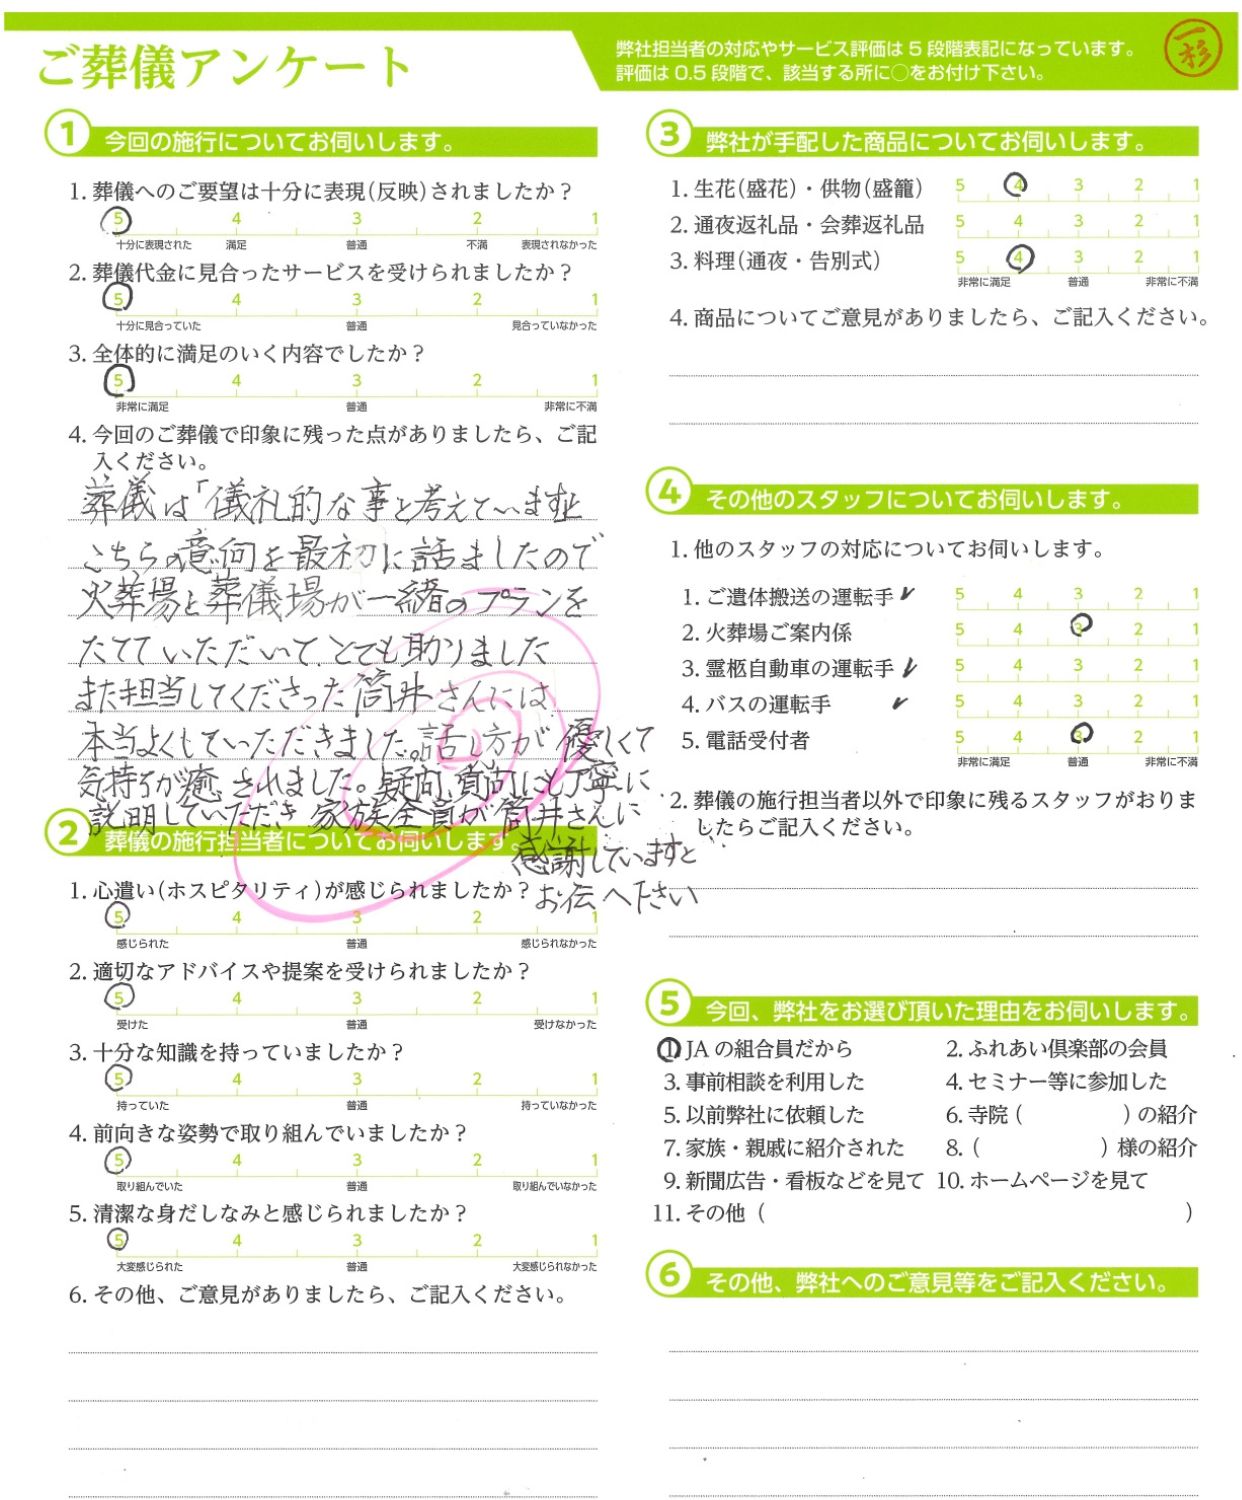 ご葬儀アンケート
弊社担当者の対応やサービス評価は5段階表記になっています。
評価は0.5段階で、該当する所に○をお付け下さい。
一杉
1 今回の施行についてお伺いします。
1. 葬儀へのご要望は十分に表現(反映)されましたか?
5 4 3 2 1
十分に表現された 満足 普通 不満 表現されなかった
2. 葬儀代金に見合ったサービスを受けられましたか?
5 4 3 2 1
十分に見合っていた 普通 見合っていなかった
3. 全体的に満足のいく内容でしたか?
5 4 3 2 1
非常に満足 普通 非常に不満
4. 今回のご葬儀で印象に残った点がありましたら、ご記
入ください。
葬儀は「儀礼的な事と考えています」と
こちらの意向を最初に話ましたので
火葬場と葬儀場が一緒のプランを
たてていただいて、とても助かりました
また担当してくださった筒井さんには
本当よくしていただきました。話し方が優しくて
気持ちが癒されました。疑問、質問にも丁寧に
説明していただき 家族全員が筒井さんに
感謝していますと
お伝へ下さい
2 葬儀の施行担当者についてお伺いします。
1. 心遣い(ホスピタリティ)が感じられましたか?
5 4 3 2 1
感じられた 普通 感じられなかった
2. 適切なアドバイスや提案を受けられましたか?
5 4 3 2 1
受けた 普通 受けなかった
3. 十分な知識を持っていましたか?
5 4 3 2 1
持っていた 普通 持っていなかった
4. 前向きな姿勢で取り組んでいましたか?
5 4 3 2 1
取り組んでいた 普通 取り組んでいなかった
5. 清潔な身だしなみと感じられましたか?
5 4 3 2 1
大変感じられた 普通 大変感じられなかった
6. その他、ご意見がありましたら、ご記入ください。
3 弊社が手配した商品についてお伺いします。
1. 生花(盛花)・供物(盛籠) 5 4 3 2 1
2. 通夜返礼品・会葬返礼品 5 4 3 2 1
3. 料理(通夜・告別式) 5 4 3 2 1
非常に満足 普通 非常に不満
4. 商品についてご意見がありましたら、ご記入ください。
4 その他のスタッフについてお伺いします。
1. 他のスタッフの対応についてお伺いします。
1. ご遺体搬送の運転手 5 4 3 2 1
2. 火葬場ご案内係 5 4 3 2 1
3. 霊柩自動車の運転手 5 4 3 2 1
4. バスの運転手 5 4 3 2 1
5. 電話受付者 5 4 3 2 1
非常に満足 普通 非常に不満
2. 葬儀の施行担当者以外で印象に残るスタッフがおりま
したらご記入ください。
5 今回、弊社をお選び頂いた理由をお伺いします。
1 JAの組合員だから 2. ふれあい倶楽部の会員
3. 事前相談を利用した 4. セミナー等に参加した
5. 以前弊社に依頼した 6. 寺院( )の紹介
7. 家族・親戚に紹介された 8. ( )様の紹介
9. 新聞広告・看板などを見て 10. ホームページを見て
11. その他( )
6 その他、弊社へのご意見等をご記入ください。